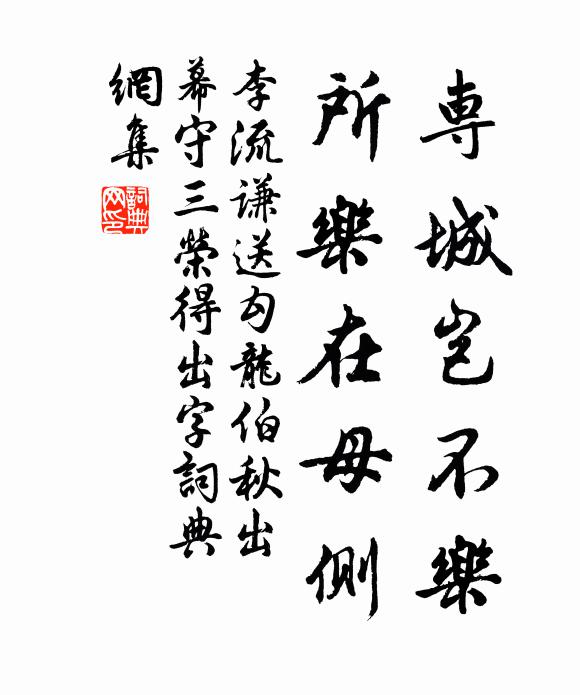 専城岂不樂
所樂在母側
李流谦送勾龍伯秋出
幕守三榮得出字詞典
網集
詞典
网印